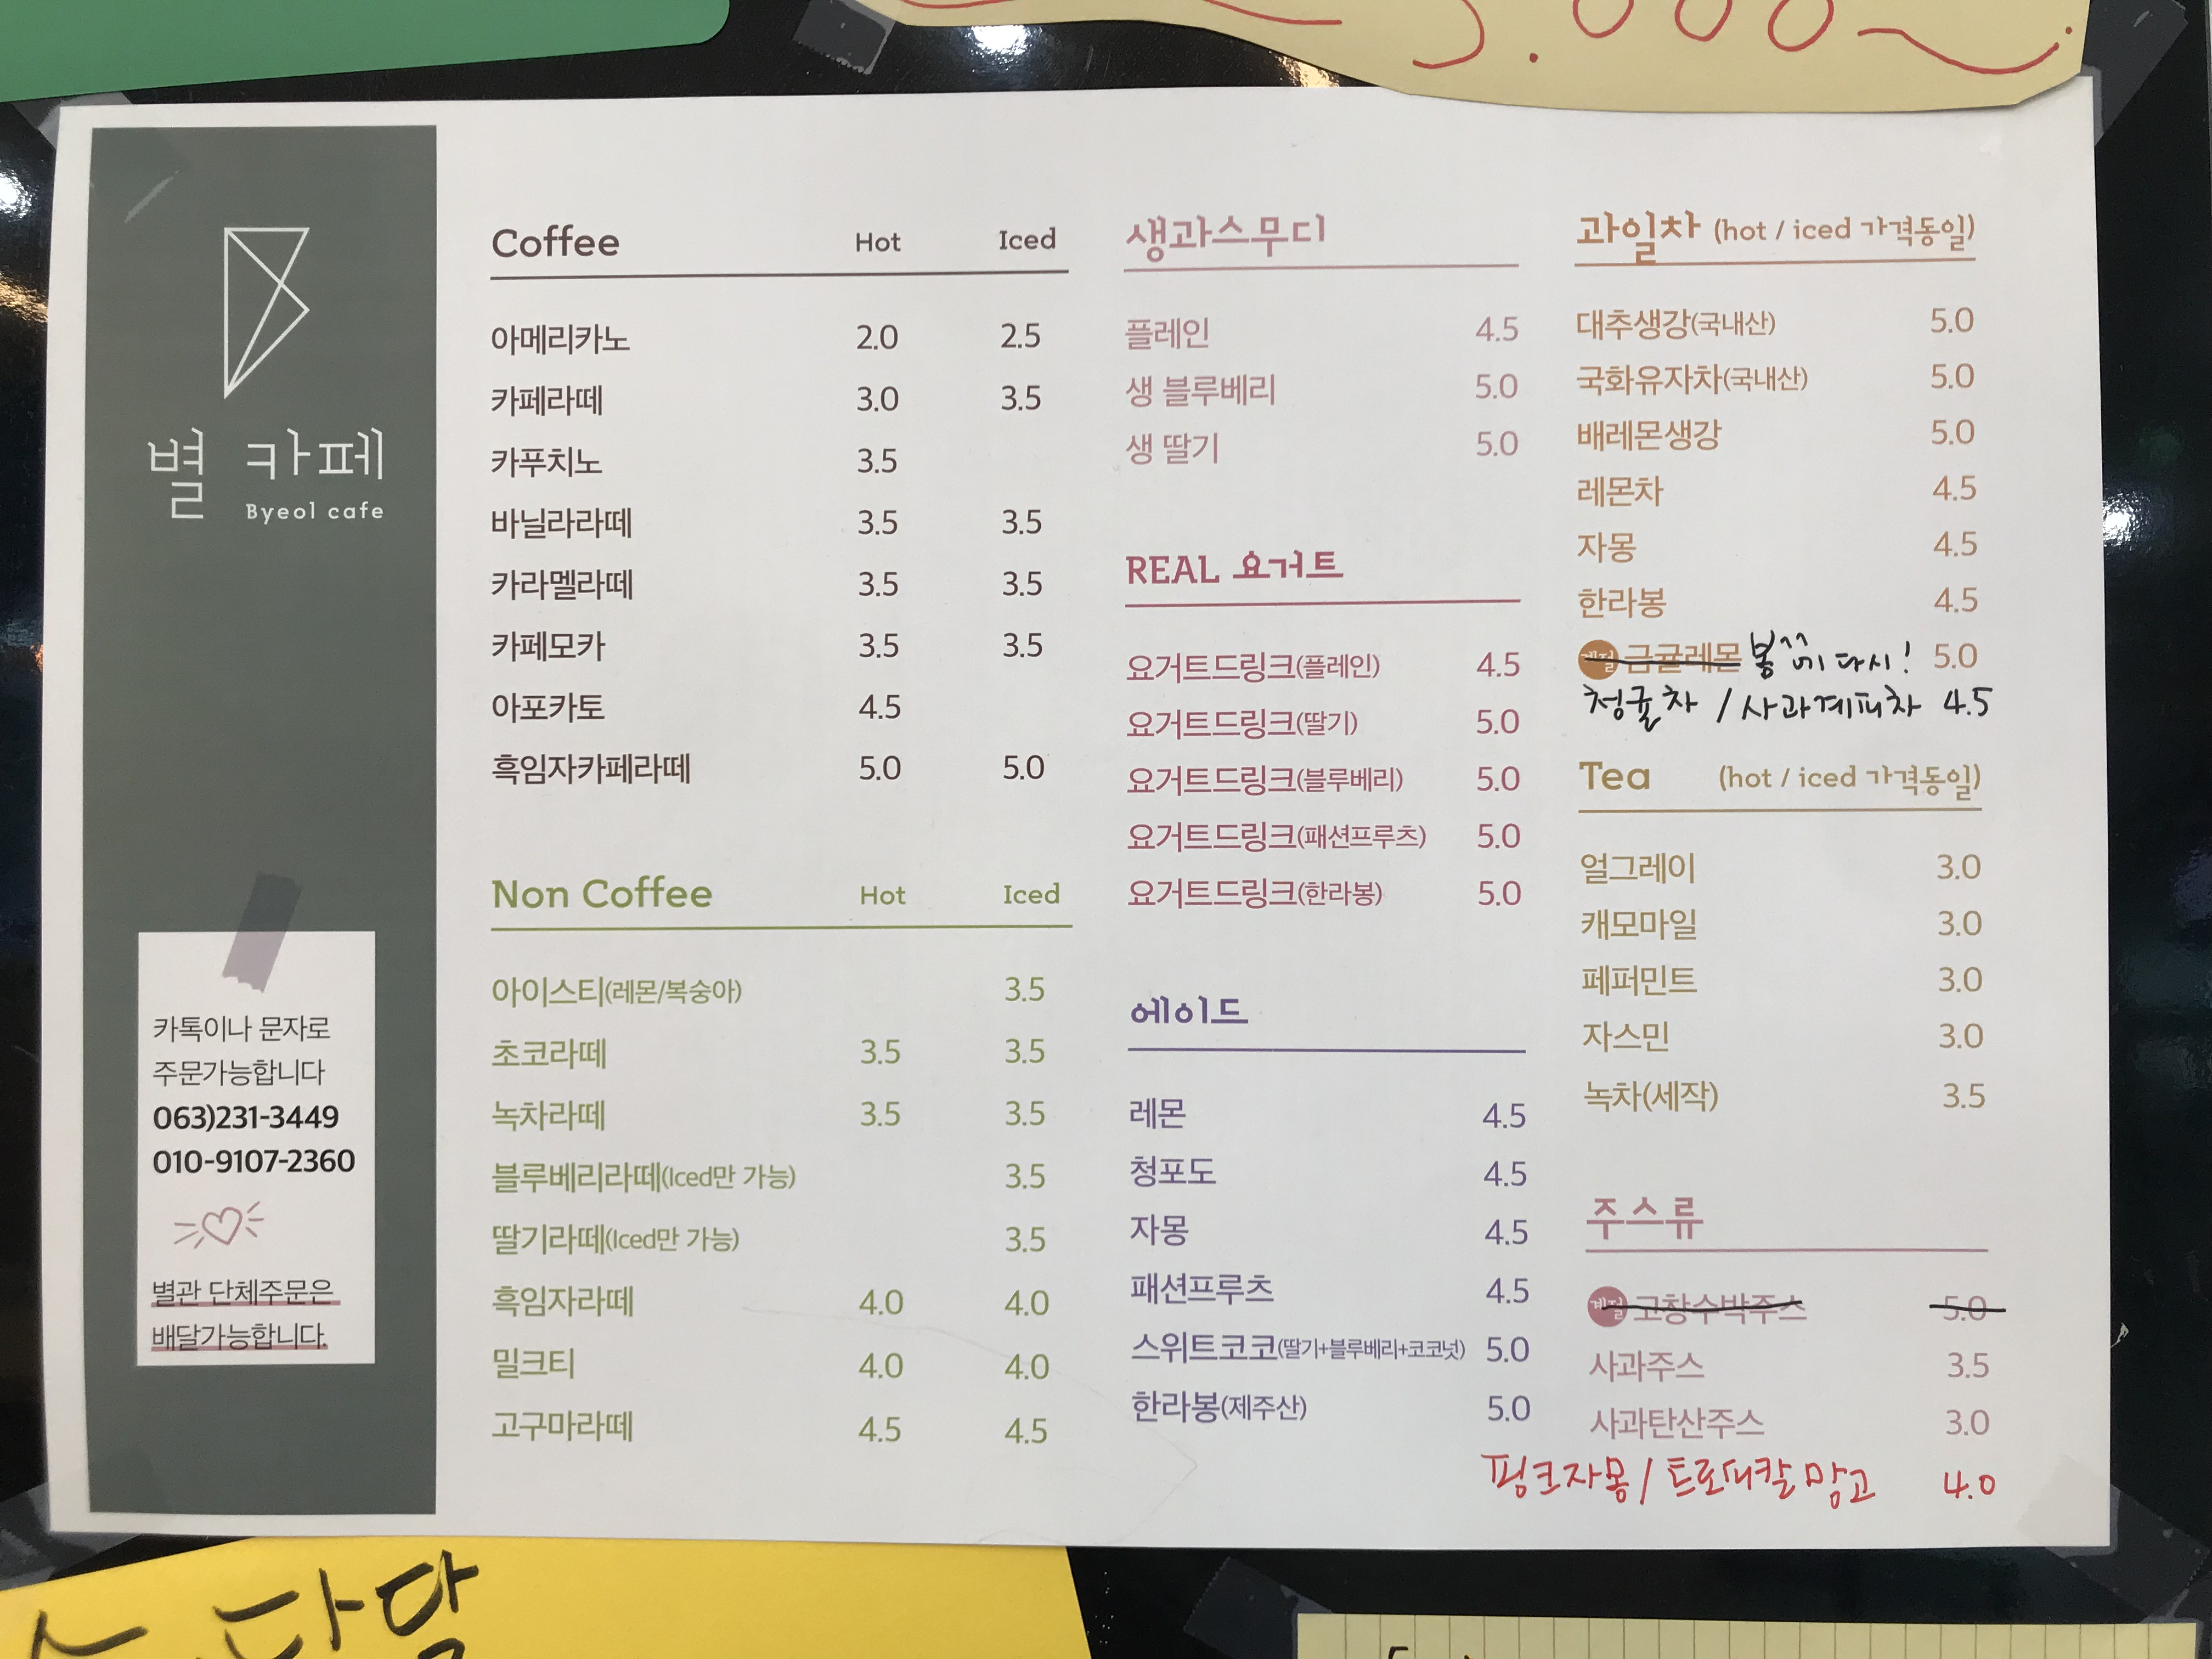 5.000~
별 카페
Byeol cafe
카톡이나 문자로
주문가능합니다
063)231-3449
010-9107-2360
별관 단체주문은
배달가능합니다.
Coffee Hot Iced
아메리카노 2.0 2.5
카페라떼 3.0 3.5
카푸치노 3.5
바닐라라떼 3.5 3.5
카라멜라떼 3.5 3.5
카페모카 3.5 3.5
아포카토 4.5
흑임자카페라떼 5.0 5.0
Non Coffee Hot Iced
아이스티(레몬/복숭아) 3.5
초코라떼 3.5 3.5
녹차라떼 3.5 3.5
블루베리라떼(Iced만 가능) 3.5
딸기라떼(Iced만 가능) 3.5
흑임자라떼 4.0 4.0
밀크티 4.0 4.0
고구마라떼 4.5 4.5
생과스무디
플레인 4.5
생 블루베리 5.0
생 딸기 5.0
REAL 요거트
요거트드링크(플레인) 4.5
요거트드링크(딸기) 5.0
요거트드링크(블루베리) 5.0
요거트드링크(패션프루츠) 5.0
요거트드링크(한라봉) 5.0
에이드
레몬 4.5
청포도 4.5
자몽 4.5
패션프루츠 4.5
스위트코코(딸기+블루베리+코코넛) 5.0
한라봉(제주산) 5.0
과일차 (hot / iced 가격동일)
대추생강(국내산) 5.0
국화유자차(국내산) 5.0
배레몬생강 5.0
레몬차 4.5
자몽 4.5
한라봉 4.5
계절 금귤레몬 봄^^에 다시! 5.0
청귤차 / 사과계피차 4.5
Tea (hot / iced 가격동일)
얼그레이 3.0
캐모마일 3.0
페퍼민트 3.0
자스민 3.0
녹차(세작) 3.5
주스류
계절 고창수박주스 5.0
사과주스 3.5
사과탄산주스 3.0
핑크자몽 / 트로피칼망고 4.0